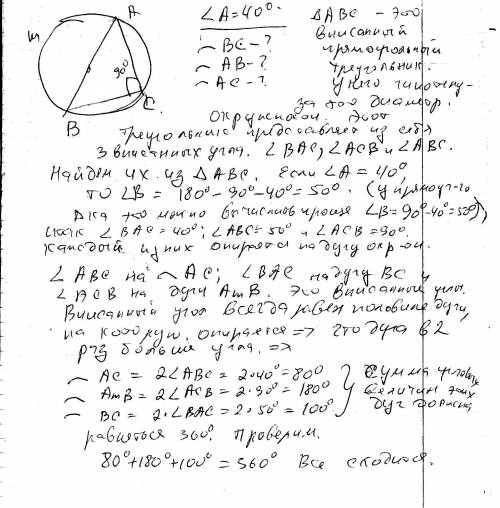 A
m
90°
C
B
∠A=40°. △ABC - это
◡ BC - ? вписанный
◡ AB - ? прямоугольный
◡ AC - ? треугольник.
У него гипотену-
за это диаметр.
окружности. Этот
треугольник представляет из себя
3 вписанных угла. ∠BAC; ∠ACB и ∠ABC.
Найдем их из △ABC. Если ∠A = 40°
то ∠B = 180° - 90° - 40° = 50°. (у прямоуг-го
△ка это можно вычислить проще ∠B = 90° - 40° = 50°)
итак ∠BAC = 40°; ∠ABC = 50° и ∠ACB = 90°.
каждый из них опирается на дугу окр-ти.
∠ABC на ◡ AC; ∠BAC на дугу BC и
∠ACB на дугу AmB. Это вписанный углы.
Вписанный угол всегда равен половине дуги,
на которую опирается => что дуга в 2
раз больше угла. =>
◡ AC = 2∠ABC = 2·40° = 80° } Сумма угловых
◡ AmB = 2∠ACB = 2·90° = 180° величин этих
◡ BC = 2·∠BAC = 2·50° = 100° дуг должна
равняться 360°. Проверим.
80° + 180° + 100° = 360° Все сходится.